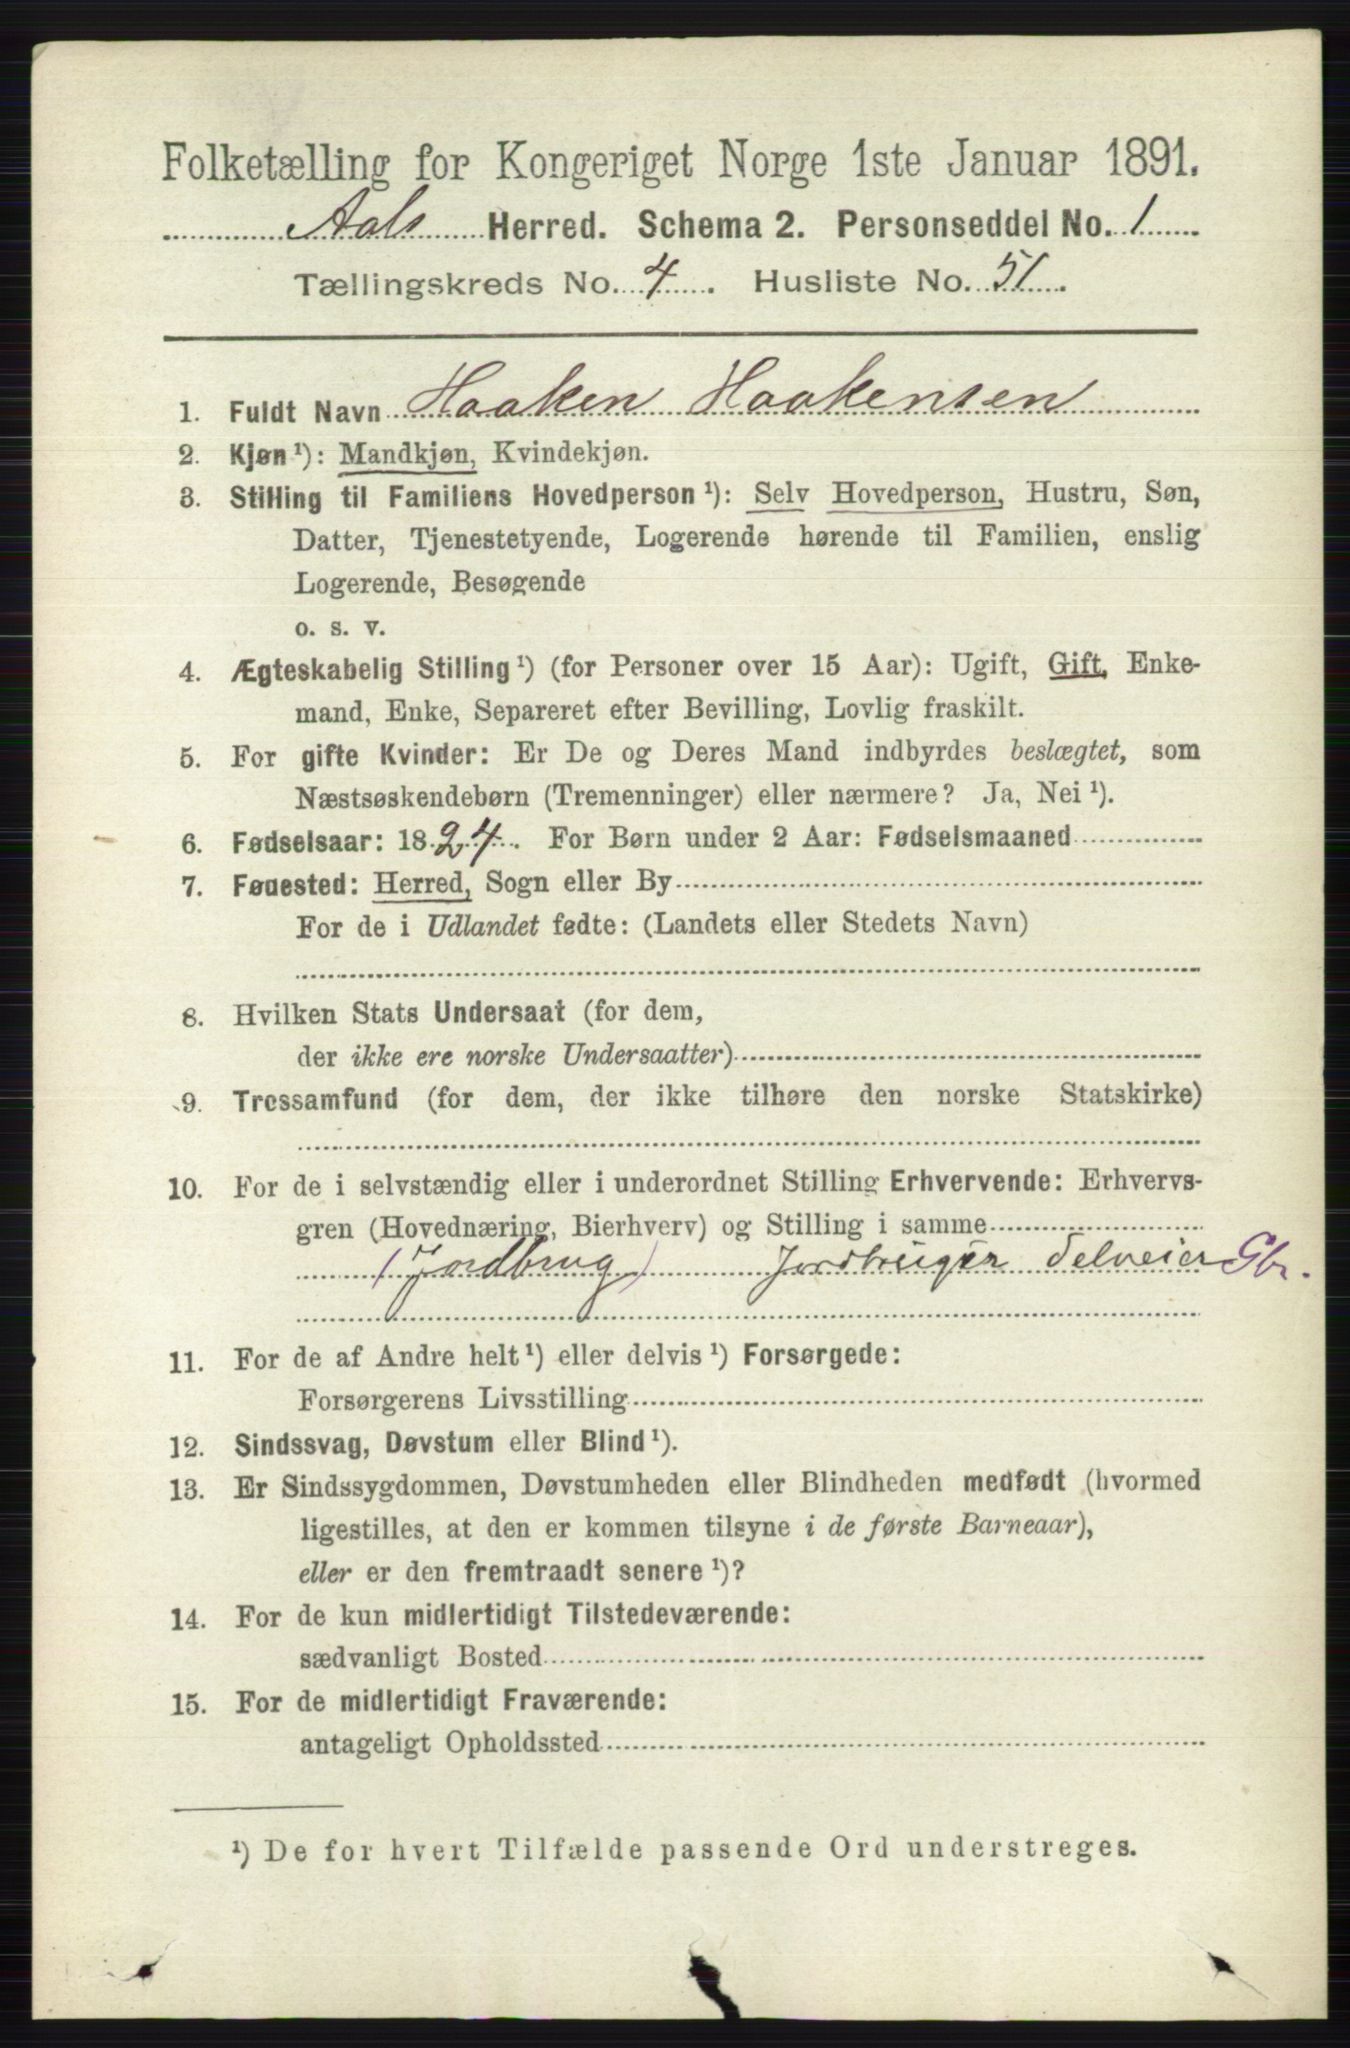 Folketælling for Kongeriget Norge 1ste Januar 1891.
Aals Herred. Schema 2. Personseddel No. 1
Tællingskreds No. 4. Husliste No. 51.
1. Fuldt Navn Haaken Haakensen
2. Kjøn¹): Mandkjøn, Kvindekjøn.
3. Stilling til Familiens Hovedperson¹): Selv Hovedperson, Hustru, Søn,
Datter, Tjenestetyende, Logerende hørende til Familien, enslig
Logerende, Besøgende
o. s. v.
4. Ægteskabelig Stilling¹) (for Personer over 15 Aar): Ugift, Gift, Enke-
mand, Enke, Separeret efter Bevilling, Lovlig fraskilt.
5. For gifte Kvinder: Er De og Deres Mand indbyrdes beslægtet, som
Næstsøskendebørn (Tremenninger) eller nærmere? Ja, Nei¹).
6. Fødselsaar: 1824. For Børn under 2 Aar: Fødselsmaaned
7. Føuested: Herred, Sogn eller By
For de i Udlandet fødte: (Landets eller Stedets Navn)
8. Hvilken Stats Undersaat (for dem,
der ikke ere norske Undersaatter)
9. Trossamfund (for dem, der ikke tilhøre den norske Statskirke)
10. For de i selvstændig eller i underordnet Stilling Erhvervende: Erhvervs-
gren (Hovednæring, Bierhverv) og Stilling i samme
(Jordbrug) Jordbruger Selveier Gbr.
11. For de af Andre helt¹) eller delvis¹) Forsørgede:
Forsørgerens Livsstilling
12. Sindssvag, Døvstum eller Blind¹).
13. Er Sindssygdommen, Døvstumheden eller Blindheden medfødt (hvormed
ligestilles, at den er kommen tilsyne i de første Barneaar),
eller er den fremtraadt senere¹)?
14. For de kun midlertidigt Tilstedeværende:
sædvanligt Bosted
15. For de midlertidigt Fraværende:
antageligt Opholdssted
¹) De for hvert Tilfælde passende Ord understreges.